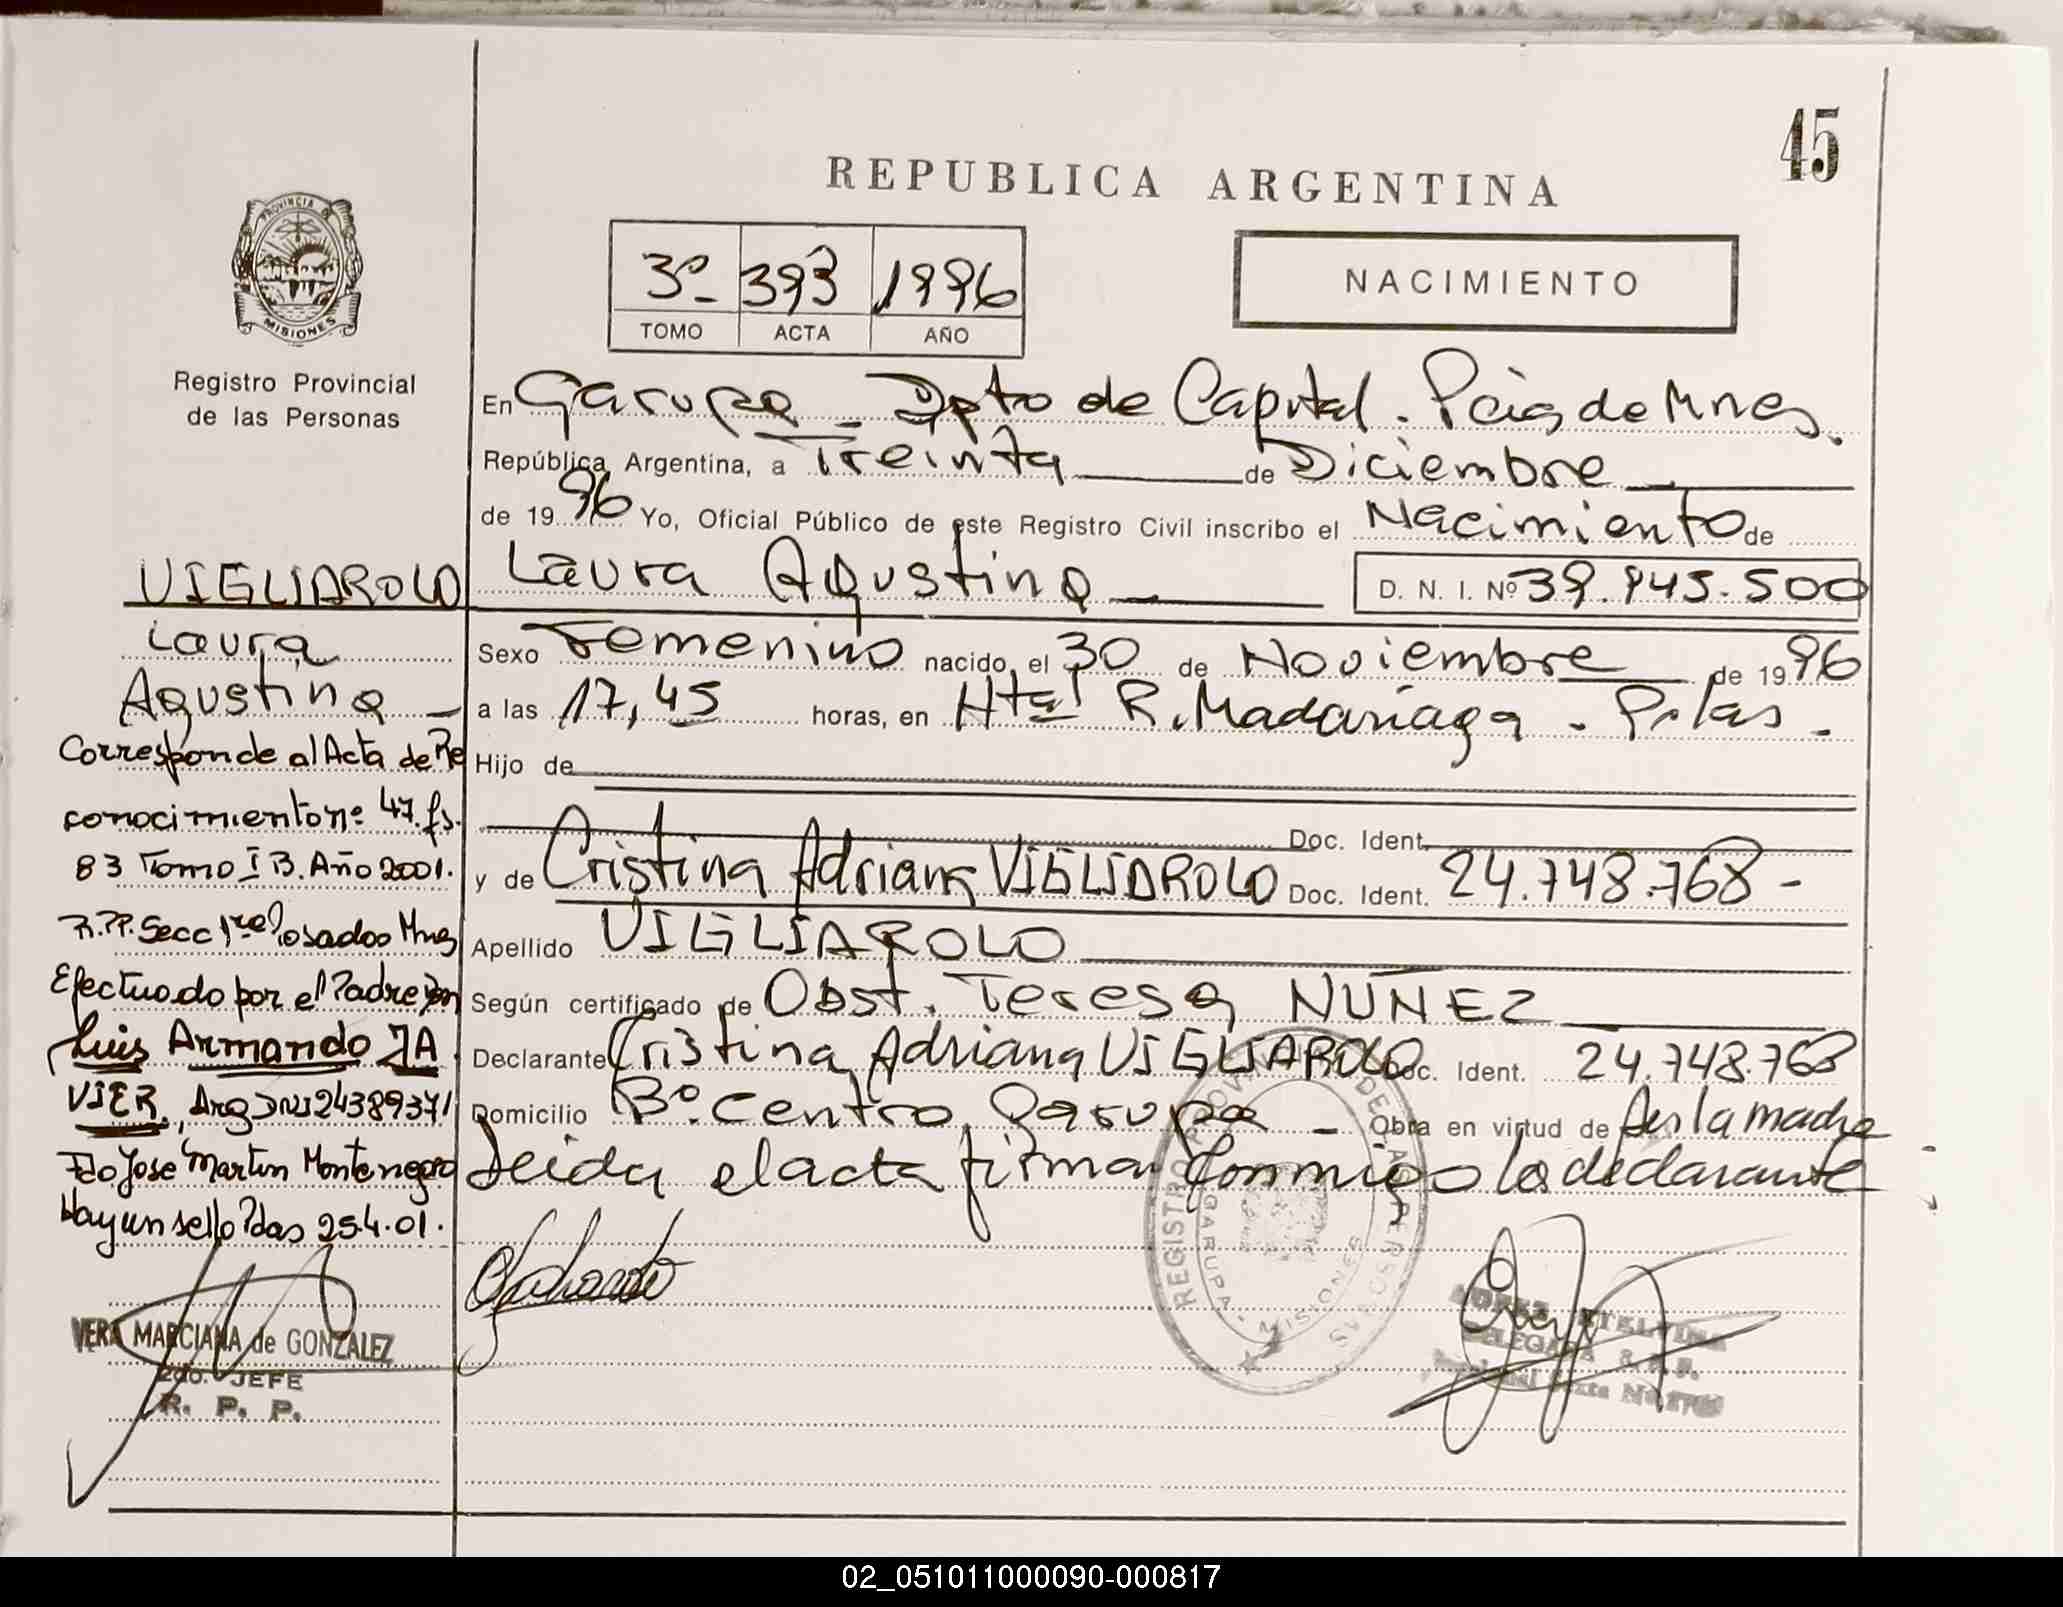 45
REPUBLICA ARGENTINA
PROVINCIA DE
MISIONES
Registro Provincial
de las Personas
3º 393 1996
TOMO ACTA AÑO
NACIMIENTO
En Garupa - Dpto de Capital. Pcia de Mnes.
República Argentina, a Treinta de Diciembre
de 1996 Yo, Oficial Público de este Registro Civil inscribo el Nacimiento de
Laura Agustina D. N. I. Nº 39.945.500
Sexo Femenino nacido, el 30 de Noviembre de 1996
a las 17,45 horas, en Htal R. Madariaga - Pdas.
Hijo de
Doc. Ident.
y de Cristina Adriana VIGLIAROLO Doc. Ident. 24.748.768-
Apellido VIGLIAROLO
Según certificado de Obst. Teresa NUÑEZ
Declarante Cristina Adriana VIGLIAROLO Doc. Ident. 24.748.768
Domicilio Bº. Centro Garupa - Obra en virtud de ser la madre
Leida el acta firma conmigo la declarante
VIGLIAROLO
Laura
Agustina
Corresponde al Acta de Re
conocimiento nº 47. fs.
83 Tomo I B. Año 2001.
R.PP. Secc 1ra Posadas Mnes
Efectuado por el Padre Don
Luis Armando JA
VIER, Arg DNI 24389371
Fdo Jose Martin Montenegro
Hay un sello Pdas 25.4.01.
VERA MARCIANA de GONZALEZ
2do. JEFE
R. P. P.
REGISTRO PROVINCIAL DE LAS PERSONAS
GARUPA - MISIONES
02_051011000090-000817